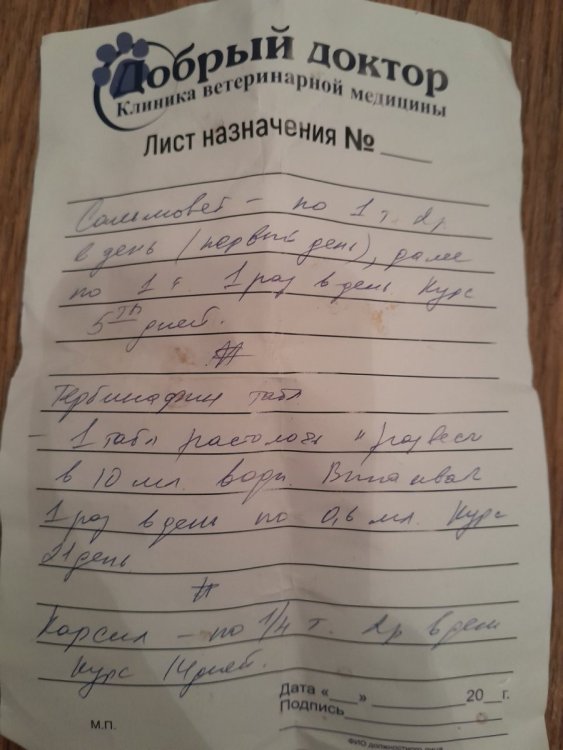 Добрый доктор
Клиника ветеринарной медицины
Лист назначения №
– по 1 т. 2р
в день (первый день), далее
по 1 т 1 раз в день. Курс
5ти дней.
Тербинафин табл
– 1 табл растолочь и развести
в 10 мл. воды. Выпаивать
1 раз в день по 0,6 мл. Курс
21 день
Карсил – по 1/4 т. 2р в день
Курс 14 дней.
Дата «__» 20__г.
Подпись
М.П.
ФИО должностного лица